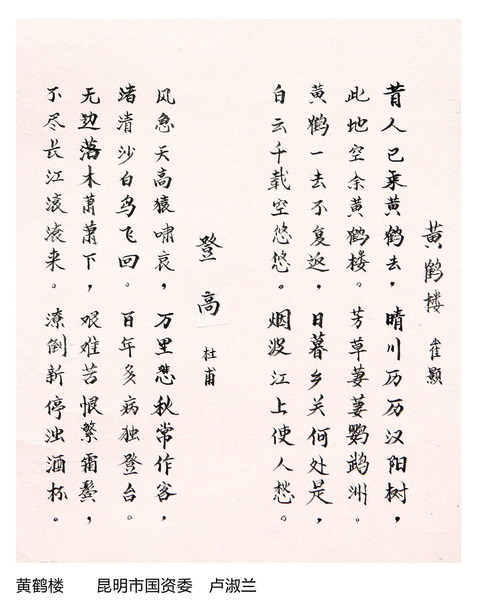 黄鹤楼 崔颢
昔人已乘黄鹤去，晴川历历汉阳树，
此地空余黄鹤楼。芳草萋萋鹦鹉洲。
黄鹤一去不复返，日暮乡关何处是，
白云千载空悠悠。烟波江上使人愁。
登高 杜甫
风急天高猿啸哀，万里悲秋常作客，
渚清沙白鸟飞回。百年多病独登台。
无边落木萧萧下，艰难苦恨繁霜鬓，
不尽长江滚滚来。潦倒新停浊酒杯。
黄鹤楼 昆明市国资委 卢淑兰